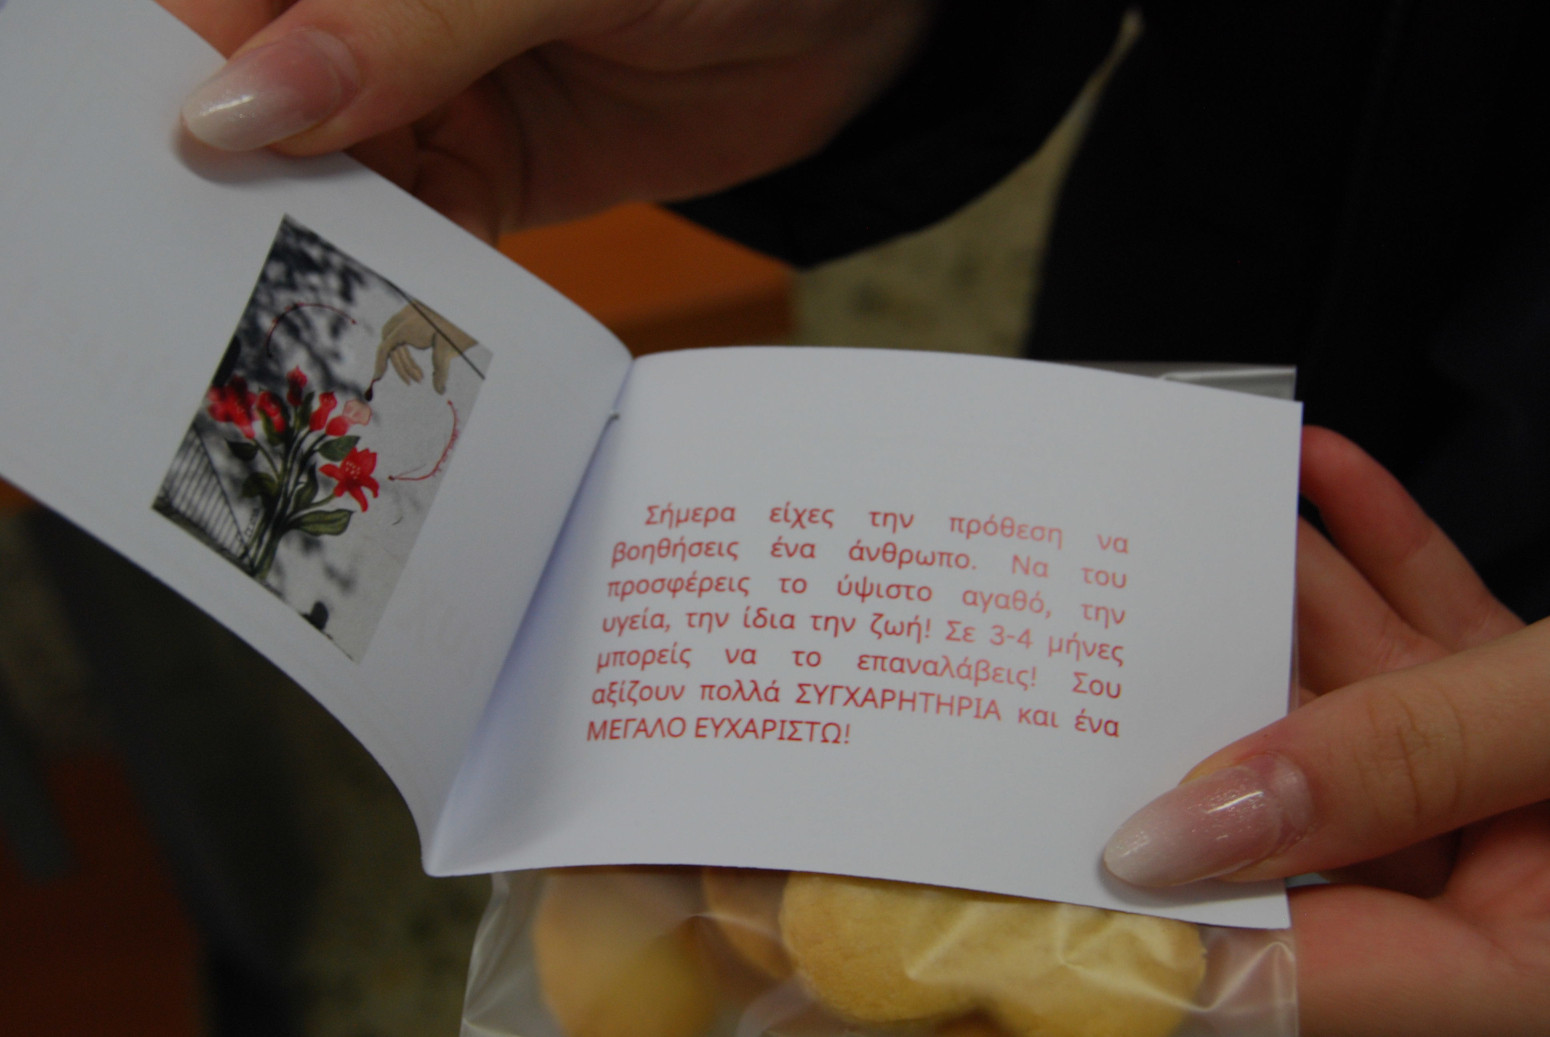 Σήμερα είχες την πρόθεση να
βοηθήσεις ένα άνθρωπο. Να του
προσφέρεις το ύψιστο αγαθό, την
υγεία, την ίδια την ζωή! Σε 3-4 μήνες
μπορείς να το επαναλάβεις! Σου
αξίζουν πολλά ΣΥΓΧΑΡΗΤΗΡΙΑ και ένα
ΜΕΓΑΛΟ ΕΥΧΑΡΙΣΤΩ!